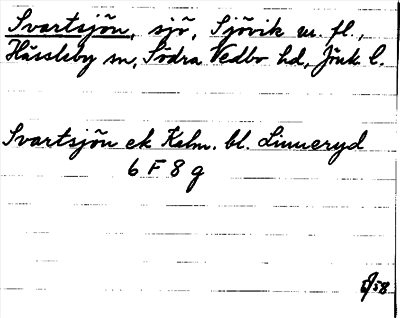 Svartsjön, sjö, Sjövik m. fl.,
Hässleby sn, Södra Vedbo hd, Jönk. l.
Svartsjön ek Kalm. bl. Linneryd
6 F 8 g